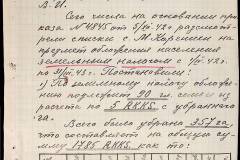 В. И.
Сего числа на основании при-
каза №4845 от 5/IV-42г. рассмотре-
ны списки с. М.
на предмет обложения населения
земельным налогом с 1/IV-42г.
по 31/III-43г. Постановили:
1) По земельному налогу обложе-
нию подлежит 90 га. земли из
расчета по 5 RKKS. с убранно-
го га.
Всего было убрано 357 га
что составляет на общую су-
мму 1785 RKKS. как то: